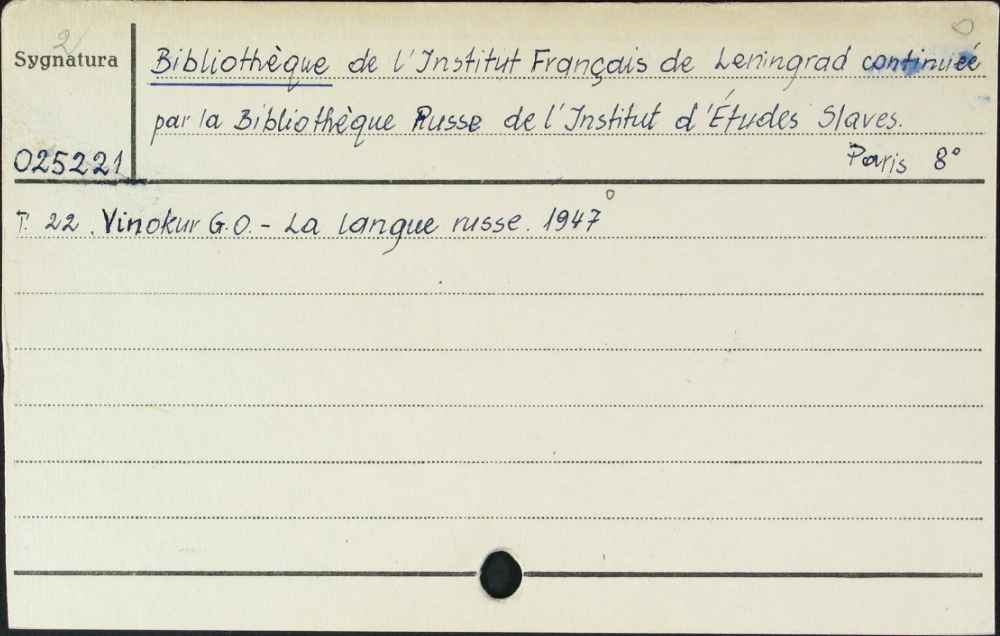 2
Sygnatura
Bibliothèque de l'Institut Français de Leningrad continuée
par la Bibliothèque Russe de l'Institut d'Études Slaves.
025221
Paris 8°
T. 22. Vinokur G.O. - La langue russe. 1947